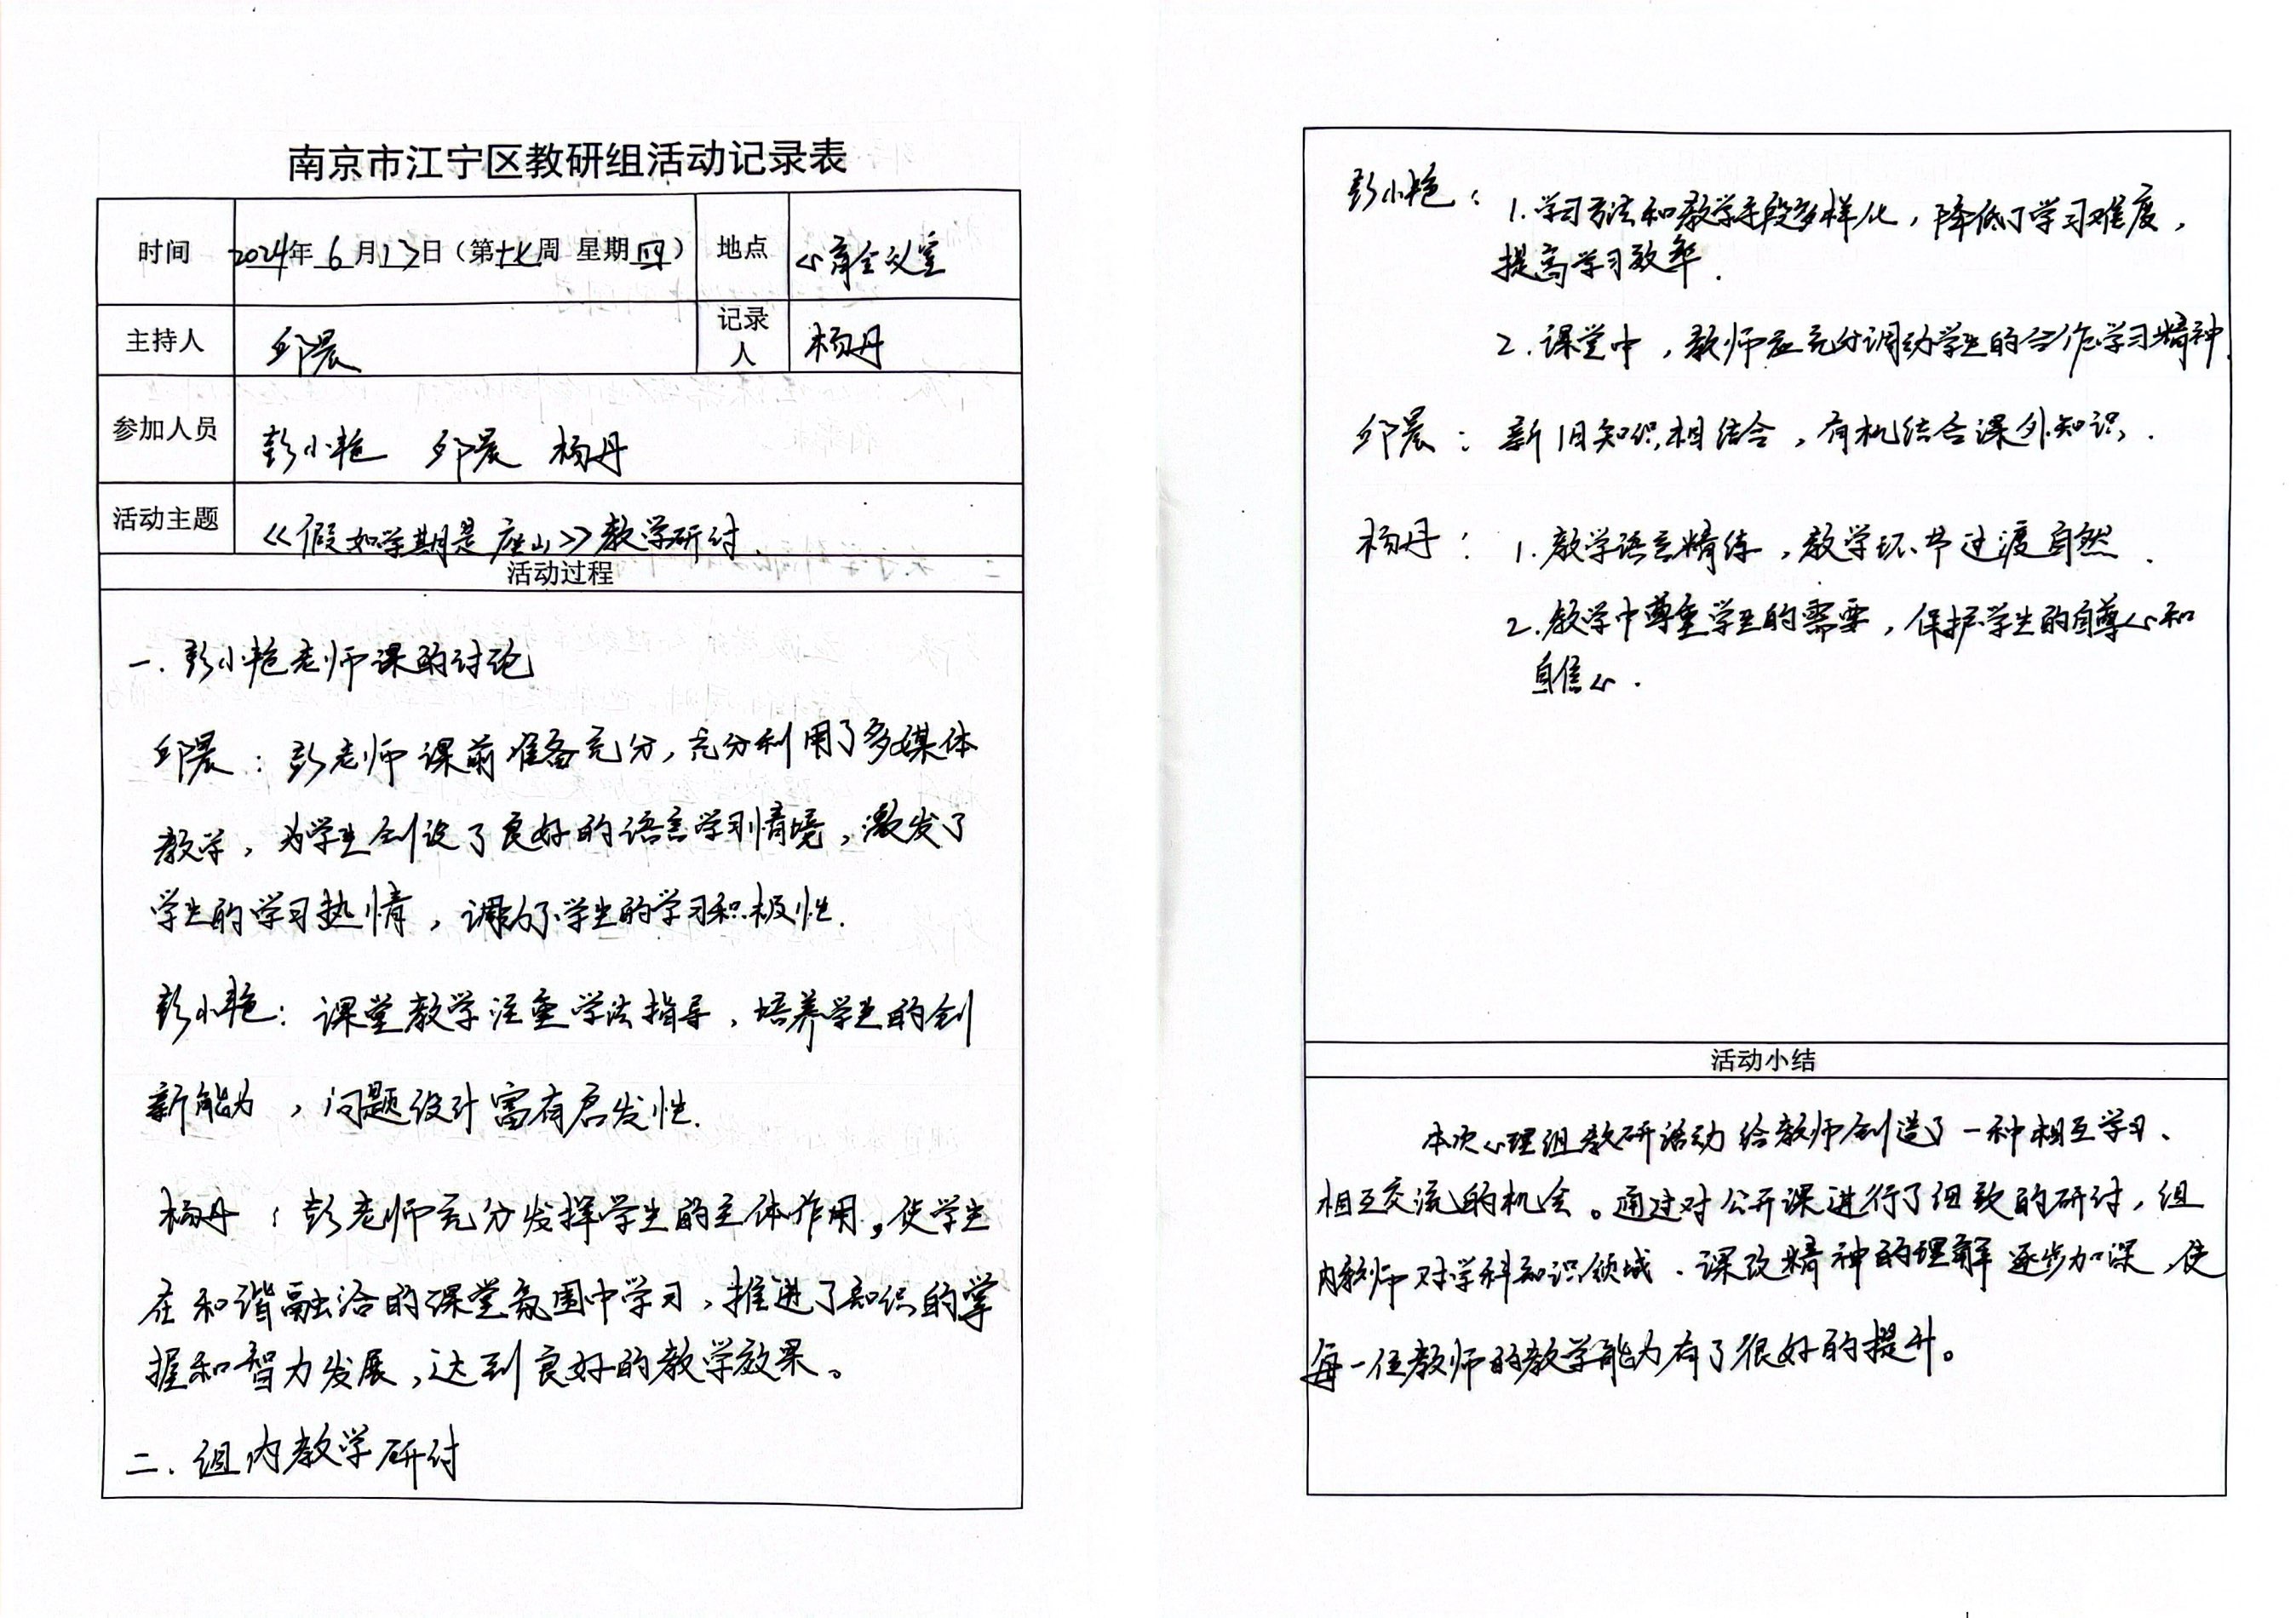 南京市江宁区教研组活动记录表
时间 2024年 6 月 13 日（第十七周 星期四） 地点 心育会议室
主持人 邱晨 记录人 杨丹
参加人员 彭小艳 邱晨 杨丹
活动主题 《假如学期是座山》教学研讻
活动过程
一. 彭小艳老师课的讨论
邱晨：彭老师课前准备充分，充分利用了多媒体
教学，为学生创设了良好的语言学习情境，激发了
学生的学习热情，调动了学生的学习积极性.
彭小艳：课堂教学注重学法指导，培养学生的创
新能力，问题设计富有启发性.
杨丹：彭老师充分发挥学生的主体作用，使学生
在和谐融洽的课堂氛围中学习，推进了知识的掌
握和智力发展，达到良好的教学效果。
二. 组内教学研讨
彭小艳：1. 学习方法和教学手段多样化，降低了学习难度，
提高学习效率.
2. 课堂中，教师应充分调动学生的合作学习精神.
邱晨：新旧知识相结合，有机结合课外知识.
杨丹：1. 教学语言精练，教学环节过渡自然.
2. 教学中尊重学生的需要，保护学生的自尊心和
自信心.
活动小结
本次心理组教研活动给教师创造了一种相互学习、
相互交流的机会。通过对公开课进行了细致的研讨，组
内教师对学科知识领域、课改精神的理解逐步加深，使
每一位教师的教学能力有了很好的提升。